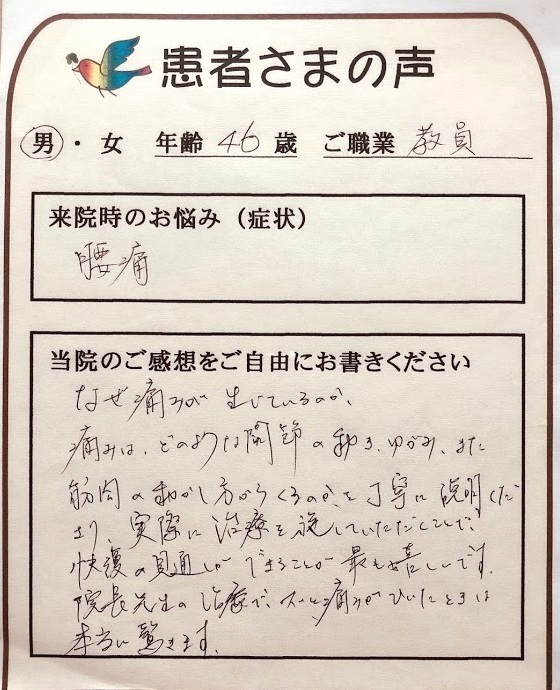 患者さまの声
男・女 年齢 46 歳 ご職業 教員
来院時のお悩み（症状）
腰痛
当院のご感想をご自由にお書きください
なぜ痛みが生じているのか、
痛みは、どのような関節の動き、ゆがみ、また
筋肉の動かし方からくるのか、を丁寧に説明くだ
さり、実際に治療を施していただくことで、
快復の見通しができることが最も嬉しいです。
院長先生の治療で、スッと痛みがひいたときは
本当に驚きます。